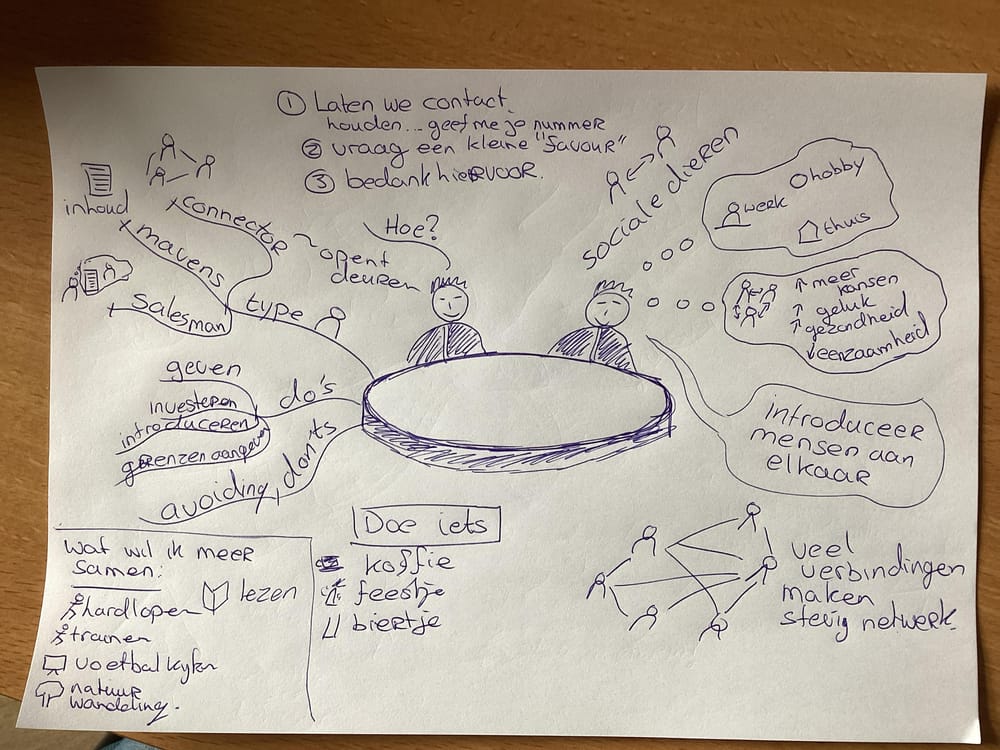 ① Laten we contact
houden... geef me je nummer
② vraag een kleine "favour"
③ bedank hiervoor.
inhoud
connector
mavens
Salesman
type
~ opent
deuren
Hoe?
sociale dieren
hobby
werk
thuis
↑ meer
kansen
↑ geluk
↑ gezondheid
↓ eenzaamheid
introduceer
mensen aan
elkaar
do's
geven
investeren
introduceren
grenzen aangeven
donts
avoiding,
Doe iets
koffie
feestje
biertje
Wat wil ik meer
samen:
hardlopen
lezen
trainen
voetbal kijken
natuur
wandeling.
veel
verbindingen
maken
stevig netwerk.